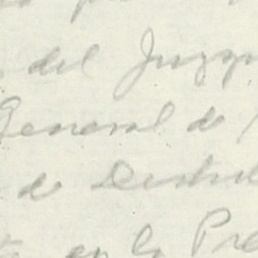 del Juzga
General de
de Distri
en la Pre